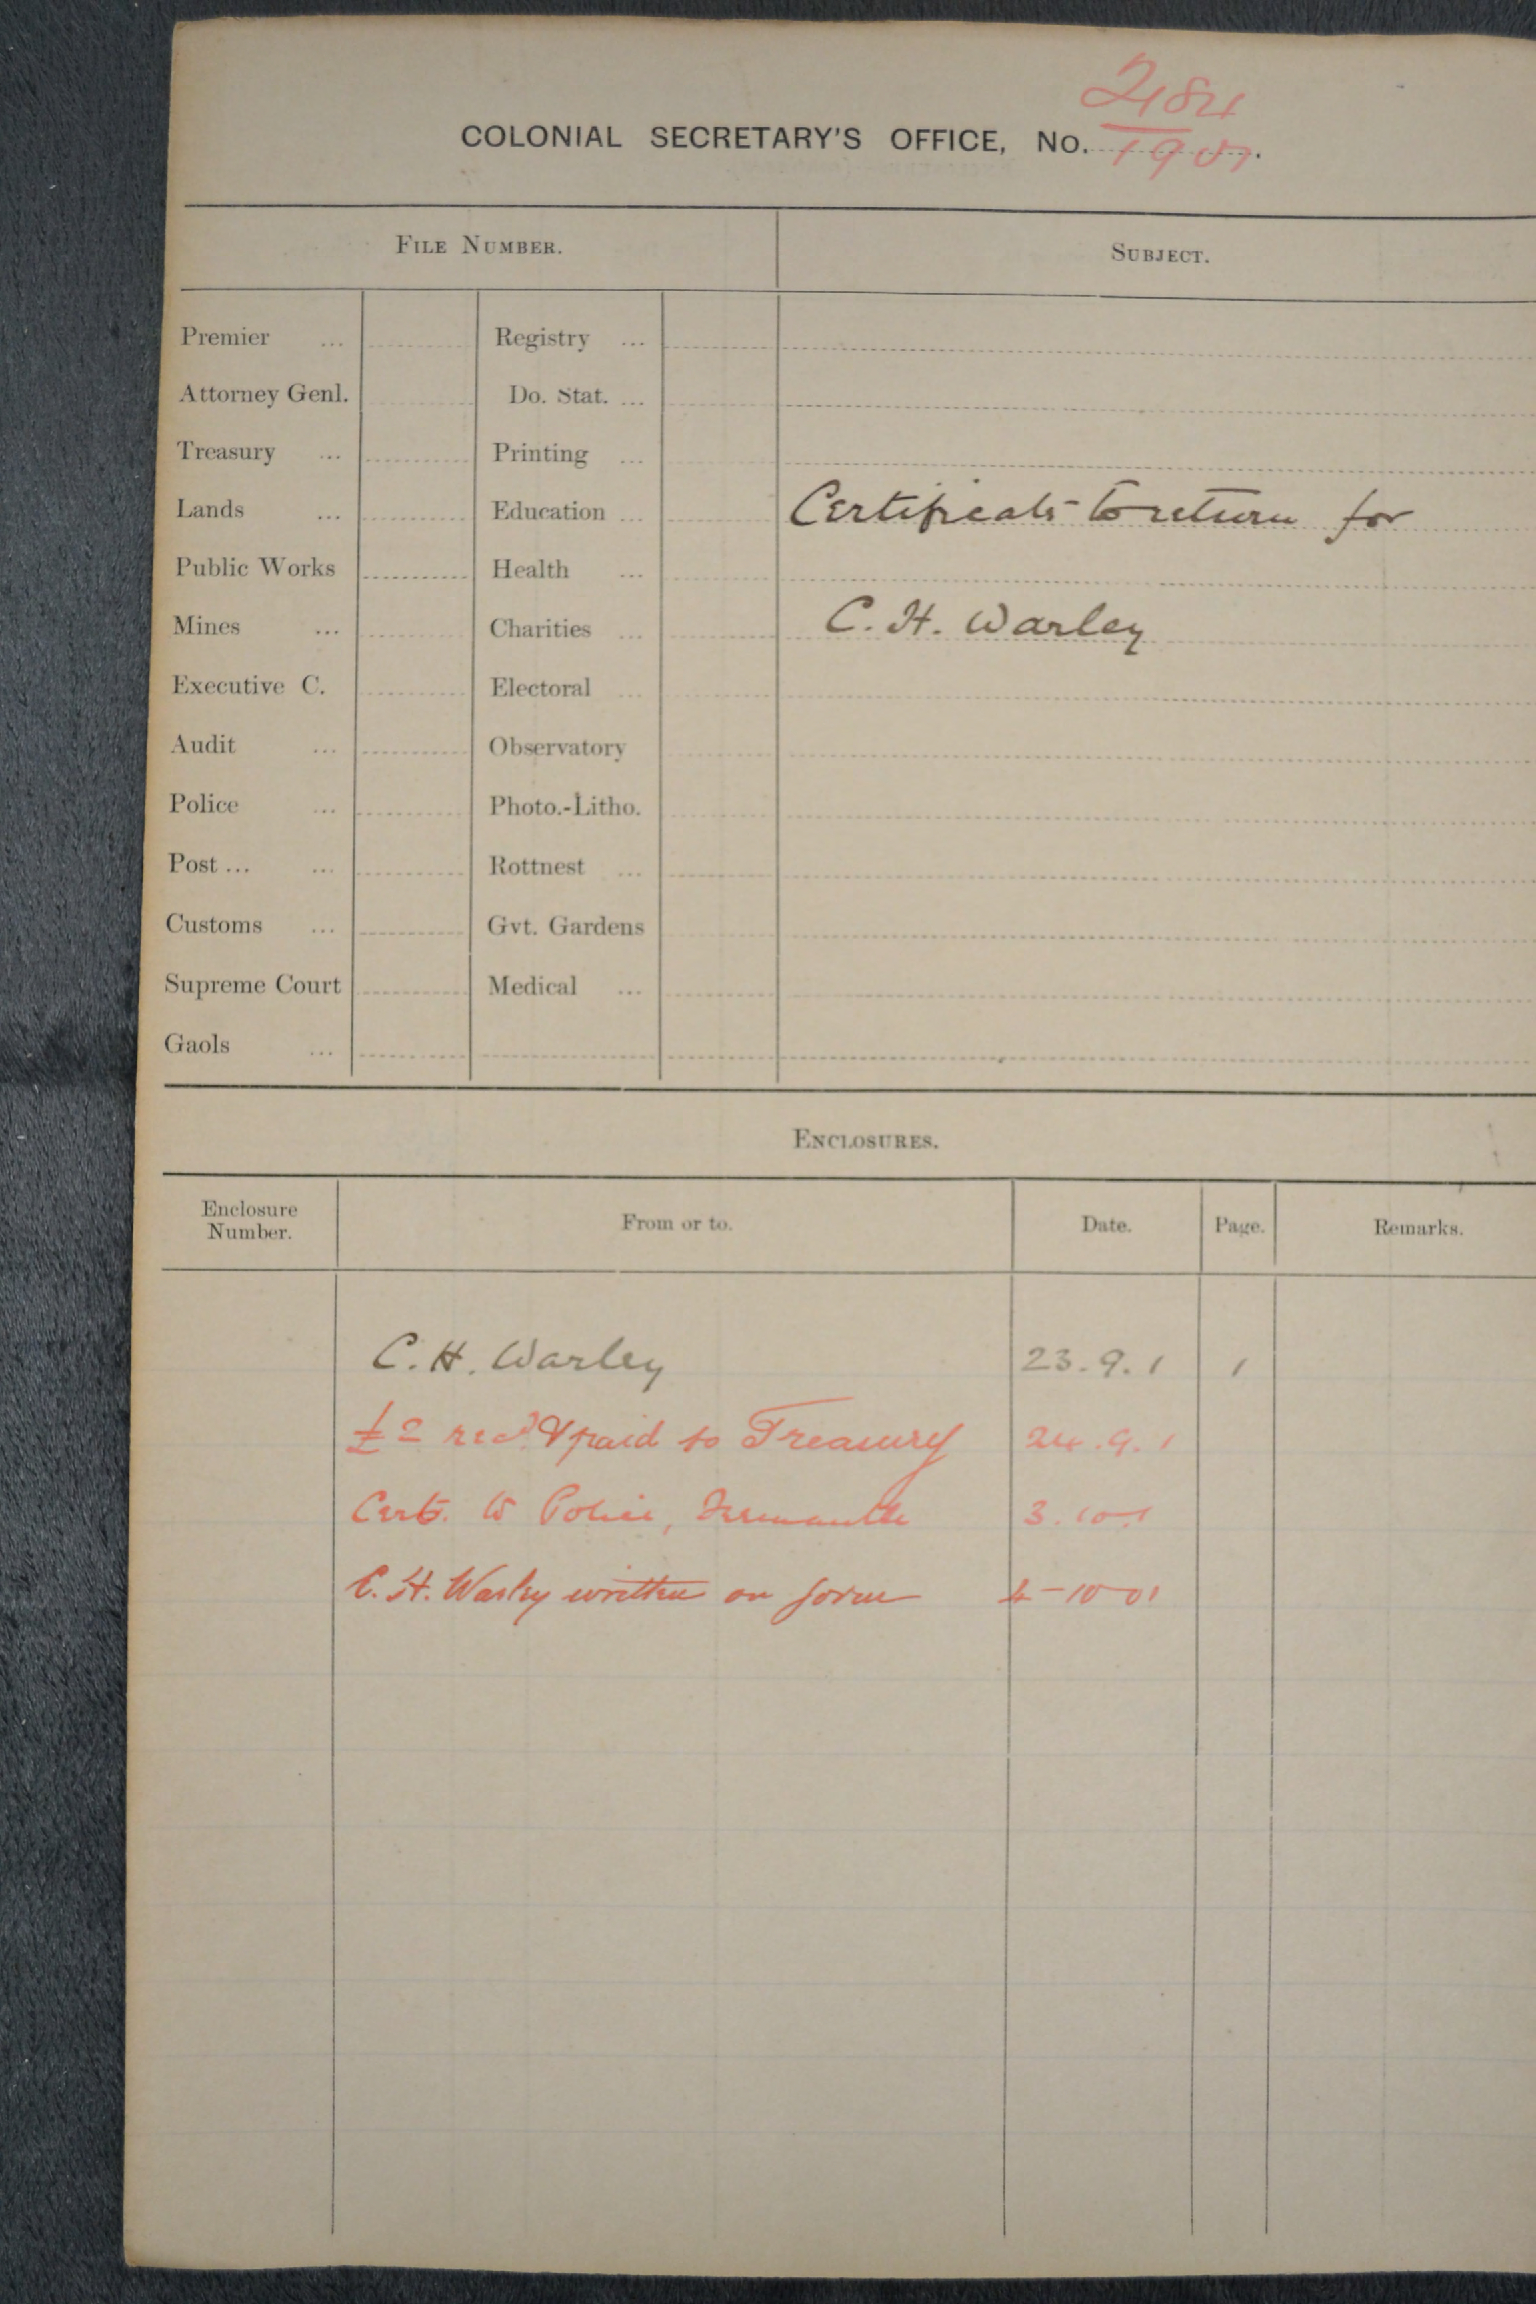 2184
COLONIAL SECRETARY'S OFFICE, No. 1901.
FILE NUMBER. SUBJECT.
Premier ... Registry ...
Attorney Genl. Do. Stat. ...
Treasury ... Printing ...
Lands ... Education ... Certificate to return for
Public Works Health ...
Mines ... Charities ... C. H. Warley
Executive C. Electoral ...
Audit ... Observatory
Police ... Photo.-Litho.
Post ... ... Rottnest ...
Customs ... Gvt. Gardens
Supreme Court Medical ...
Gaols ...
ENCLOSURES.
Enclosure Number. From or to. Date. Page. Remarks.
C. H. Warley 23.9.1 1
£2 recd & paid to Treasury 24.9.1
Cert. to Police, Fremantle 3.10.1
C. H. Warley written on form 4-10-01